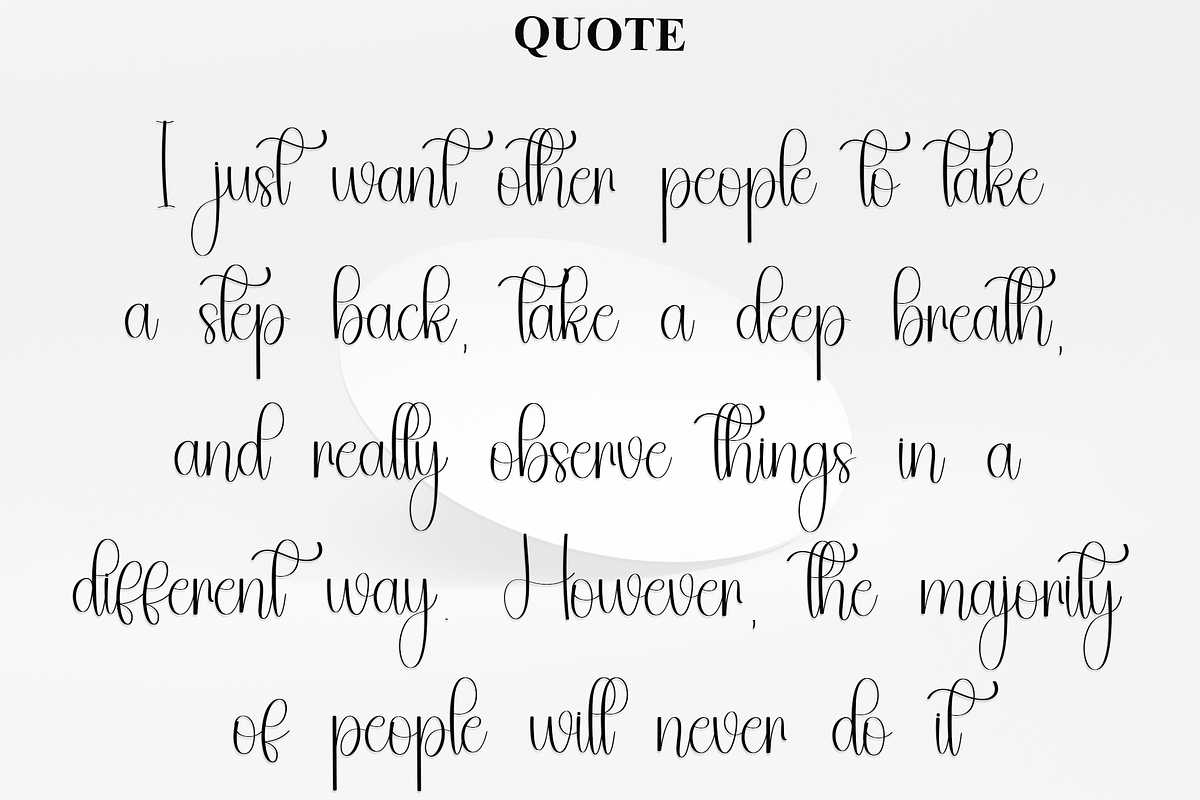 QUOTE
I just want other people to take
a step back, take a deep breath,
and really observe things in a
different way. However, the majority
of people will never do it